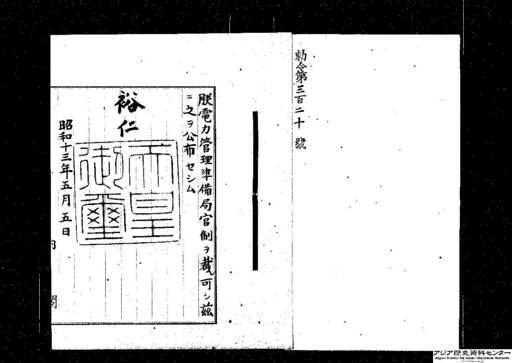 勅令第三百二十號
朕電力管理準備局官制ヲ裁可シ茲
ニ之ヲ公布セシム
裕仁
天皇
御璽
昭和十三年五月五日
内閣
アジア歴史資料センター
Japan Center for Asian Historical Records